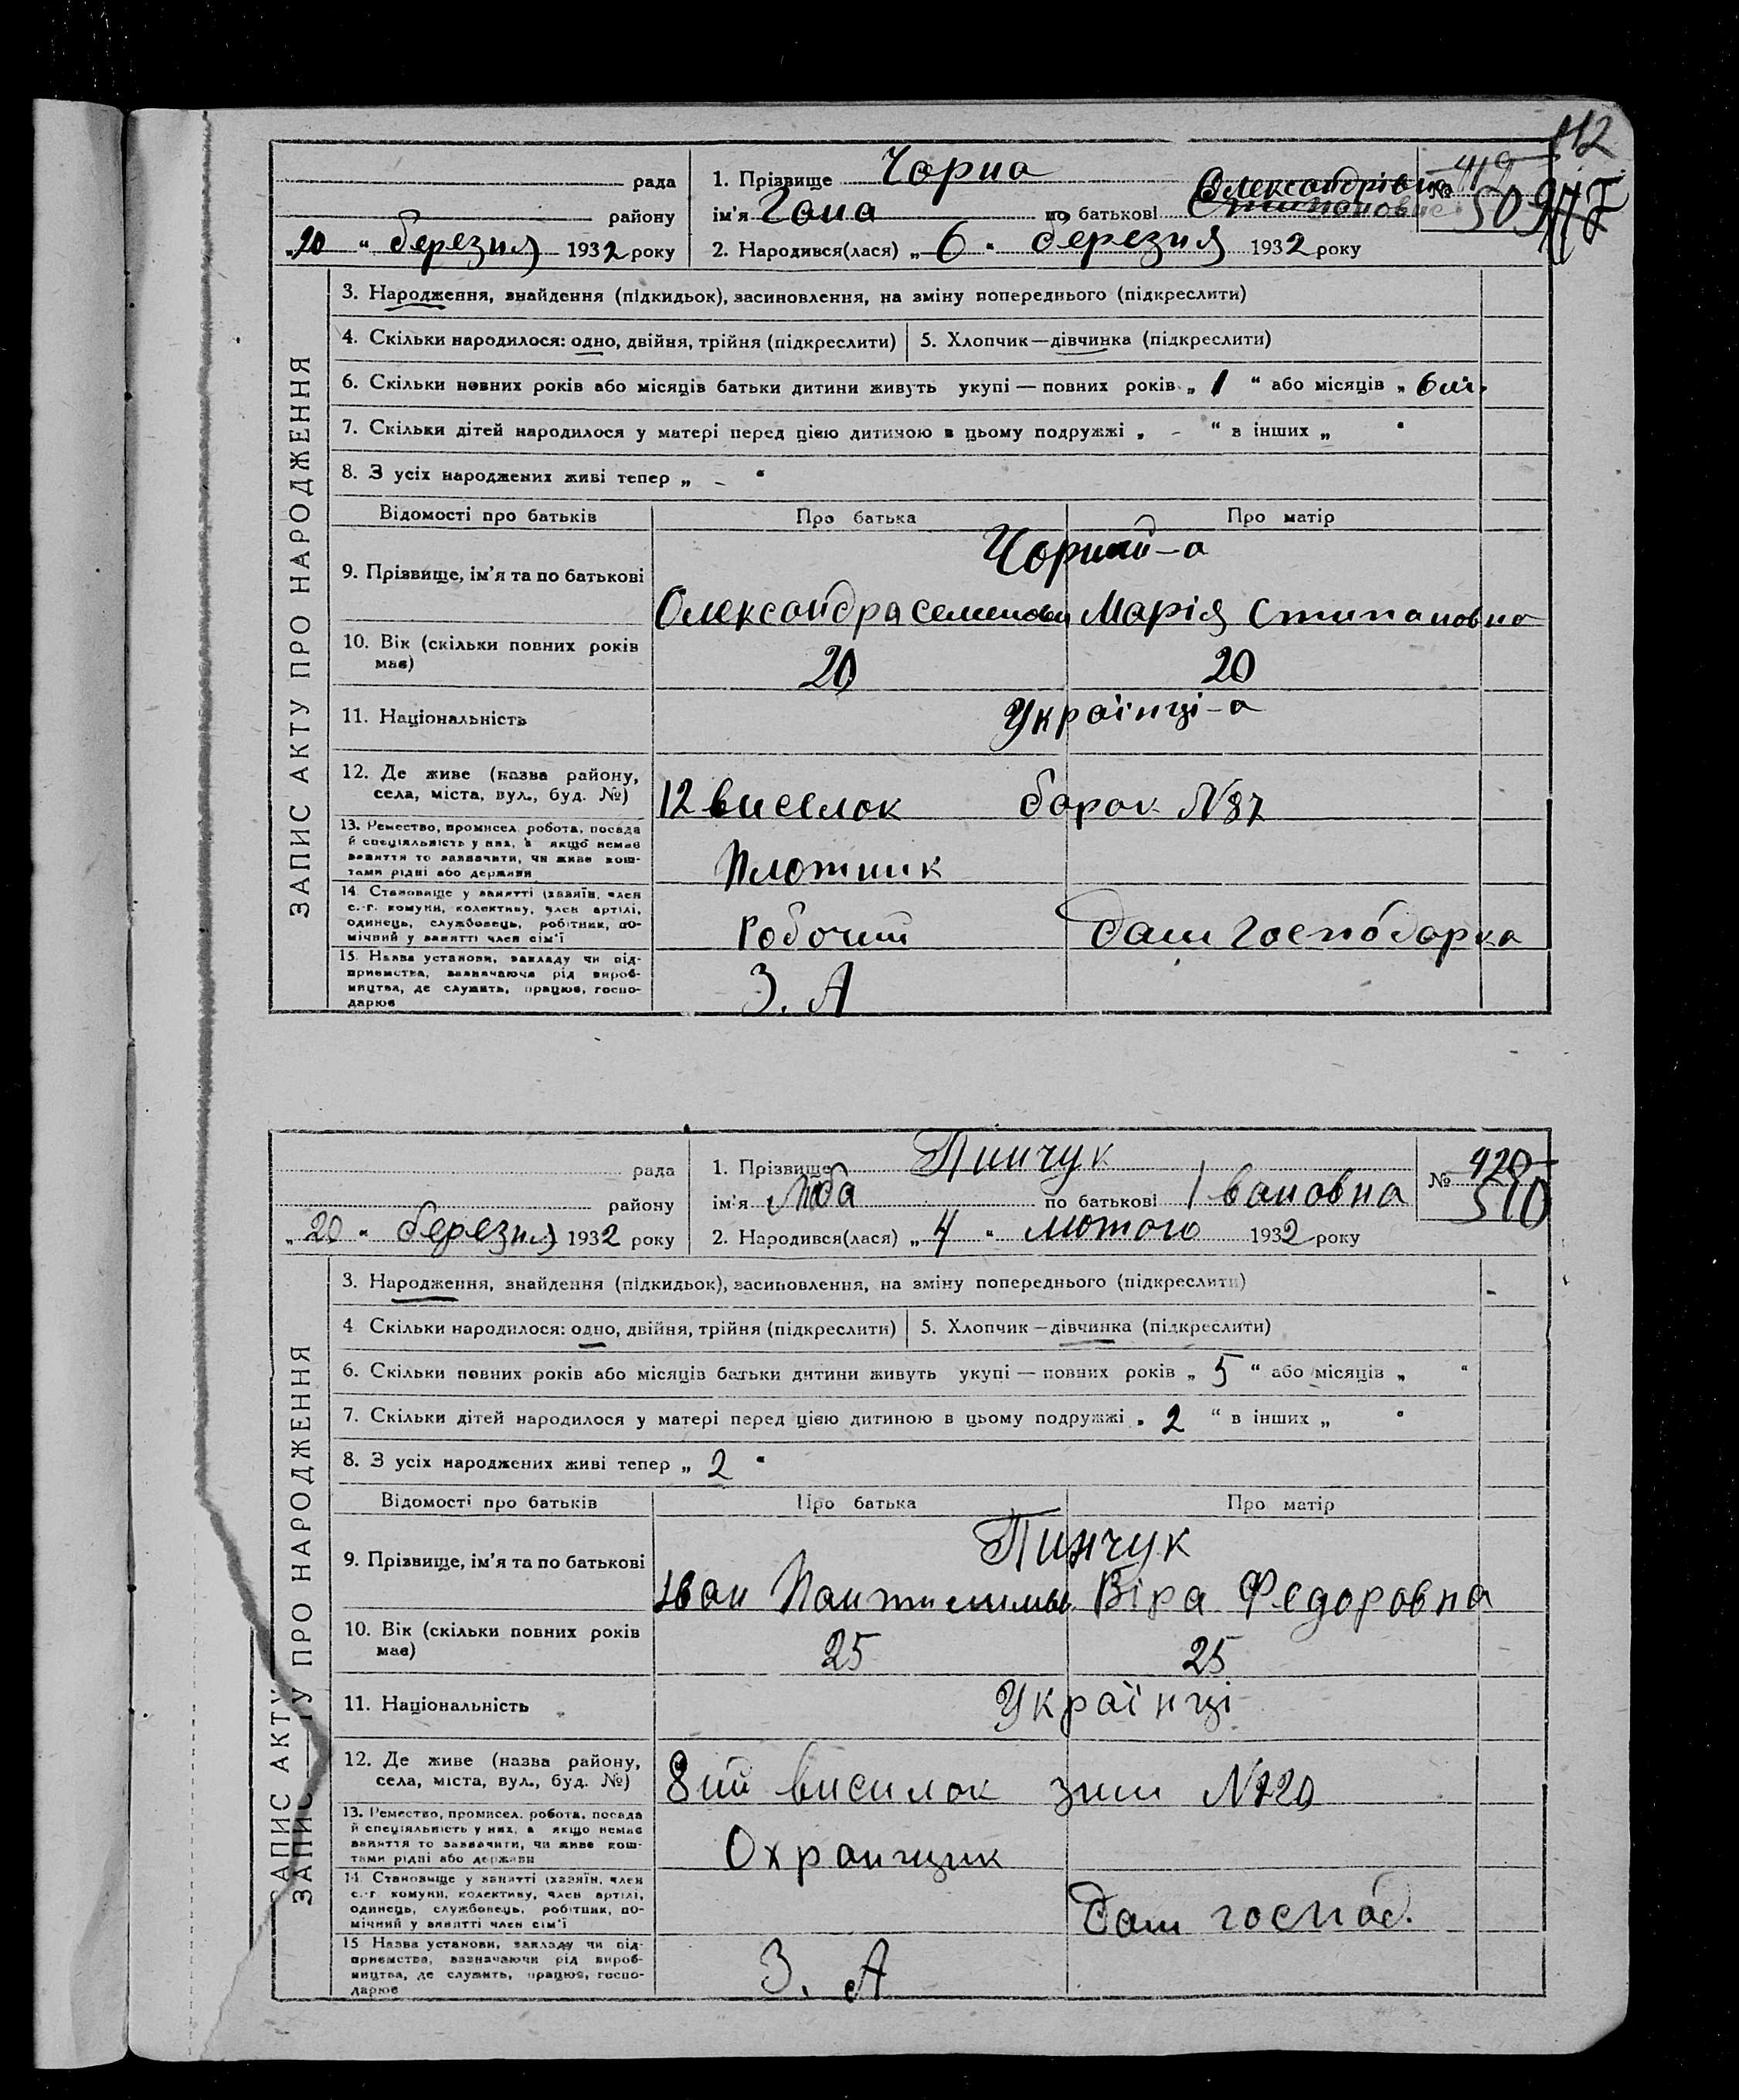 112
рада
1. Прізвище Чорна
№ 419
509
району
ім'я Гана по батькові Олександрівна
„20“ березня 1932 року
2. Народився(лася) „6“ березня 1932 року
ЗАПИС АКТУ ПРО НАРОДЖЕННЯ
3. Народження, знайдення (підкидьок), засиновлення, на зміну попереднього (підкреслити)
4. Скільки народилося: одно, двійня, трійня (підкреслити) 5. Хлопчик—дівчинка (підкреслити)
6. Скільки повних років або місяців батьки дитини живуть укупі — повних років „1“ або місяців „6 м.
7. Скільки дітей народилося у матері перед цією дитиною в цьому подружжі „ - “ в інших „ “
8. З усіх народжених живі тепер „ - “
Відомості про батьків Про батька Про матір
Чорний-а
9. Прізвище, ім'я та по батькові
Олександра Семенови Марія Стипановна
10. Вік (скільки повних років має) 20 20
11. Національність Українці-а
12. Де живе (назва району, села, міста, вул., буд. №) 12 виселок барак N87
13. Ремество, промисел, робота, посада
й спеціяльність у них, а якщо немає
заняття то зазначити, чи живе кош-
тами рідні або держави
Плотник
14. Становище у занятті (хазяїн, член
с.-г. комуни, колективу, член артілі,
одинець, службовець, робітник, по-
мічний у занятті член сім'ї
Робочий Дом господарка
15. Назва установи, закладу чи під-
приємства, зазначаючи рід вироб-
ництва, де служить, працює, госпо-
дарює
З. А
рада
1. Прізвище Пинчук
№ 420
510
району
ім'я Люба по батькові Івановна
„20“ березня 1932 року
2. Народився(лася) „4“ лютого 1932 року
ЗАПИС АКТУ ПРО НАРОДЖЕННЯ
ЗАПИС АКТУ
3. Народження, знайдення (підкидьок), засиновлення, на зміну попереднього (підкреслити)
4 Скільки народилося: одно, двійня, трійня (підкреслити) 5. Хлопчик—дівчинка (підкреслити)
6. Скільки повних років або місяців батьки дитини живуть укупі — повних років „5“ або місяців „ “
7. Скільки дітей народилося у матері перед цією дитиною в цьому подружжі „2“ в інших „ “
8. З усіх народжених живі тепер „2“
Відомості про батьків Про батька Про матір
Пинчук
9. Прізвище, ім'я та по батькові
Іван Віра Федоровна
10. Вік (скільки повних років має) 25 25
11. Національність Українці
12. Де живе (назва району, села, міста, вул., буд. №) 8ий висилок зим N120
13. Ремество, промисел, робота, посада
й спеціяльність у них, а якщо немає
заняття то зазначити, чи живе кош-
тами рідні або держави
Охранщик
14. Становище у занятті (хазяїн, член
с.-г. комуни, колективу, член артілі,
одинець, службовець, робітник, по-
мічний у занятті член сім'ї
Дом господ.
15 Назва установи, закладу чи під-
приємства, зазначаючи рід вироб-
ництва, де служить, працює, госпо-
дарює
З. А